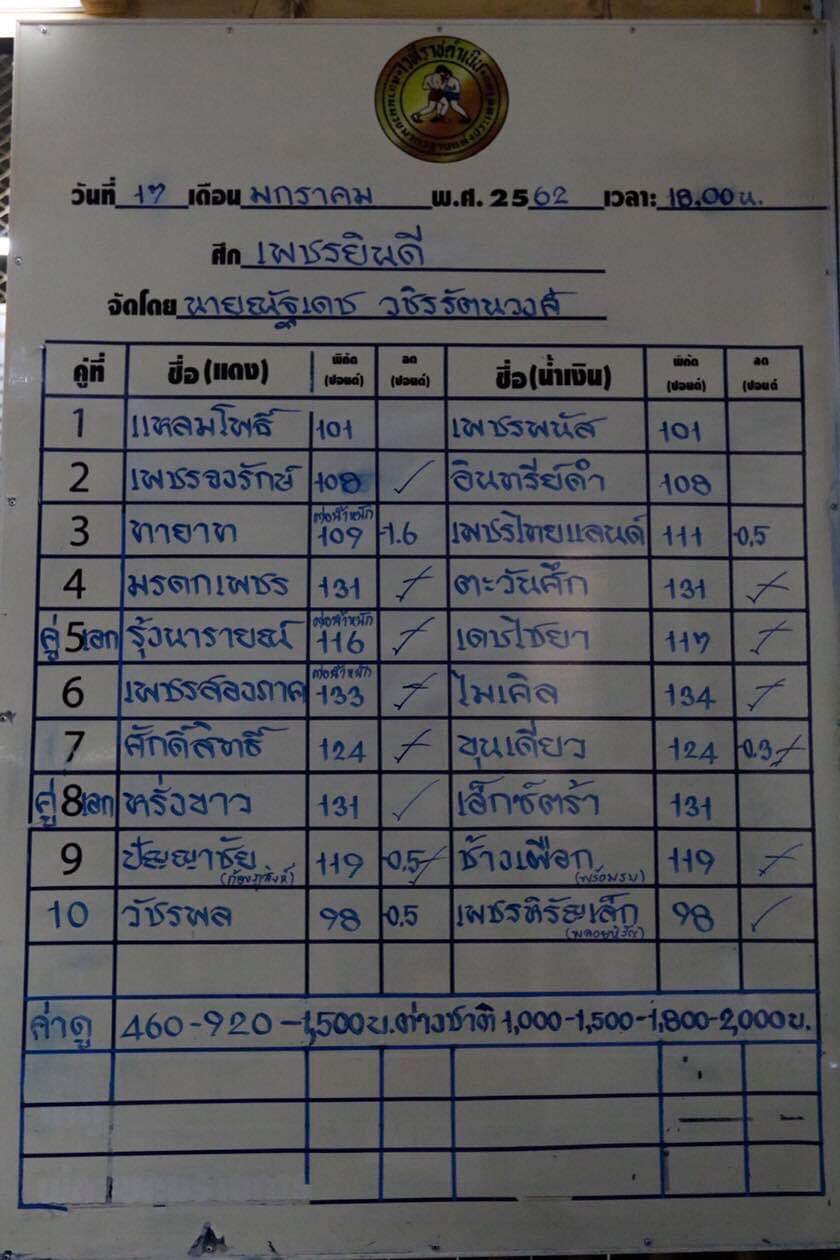 เวทีราชดำเนิน
วันที่ 17 เดือน มกราคม พ.ศ. 2562 เวลา: 18.00 น.
ศึก เพชรยินดี
จัดโดย นายณัฐเดช วชิรรัตนวงศ์
คู่ที่ ชื่อ (แดง) พิกัด (ปอนด์) ลด (ปอนด์) ชื่อ (น้ำเงิน) พิกัด (ปอนด์) ลด (ปอนด์
1 แหลมโพธิ์ 101 เพชรพนัส 101
2 เพชรจงรักษ์ 108 ✓ อินทรีย์ดำ 108
3 ทายาท ต่อน้ำหนัก 109 -1.6 เพชรไทยแลนด์ 111 -0.5
4 มรดกเพชร 131 ตะวันศึก 131
คู่ 5 เอก รุ้งนารายณ์ ต่อน้ำหนัก 116 เดชไชยา 117
6 เพชรสองภาค ต่อน้ำหนัก 133 ไมเคิล 134
7 ศักดิ์สิทธิ์ 124 ขุนเดี่ยว 124 -0.3
คู่ 8 เอก หรั่งขาว 131 ✓ เอ็กซ์ตร้า 131
9 ปัญญาชัย 119 -0.5 ช้างเผือก (พร้อมรบ) 119
10 วัชรพล 98 -0.5 เพชรหิรัญเล็ก 98 ✓
ค่าดู 460-920-1,500 บ. ต่างชาติ 1,000-1,500-1,800-2,000 บ.